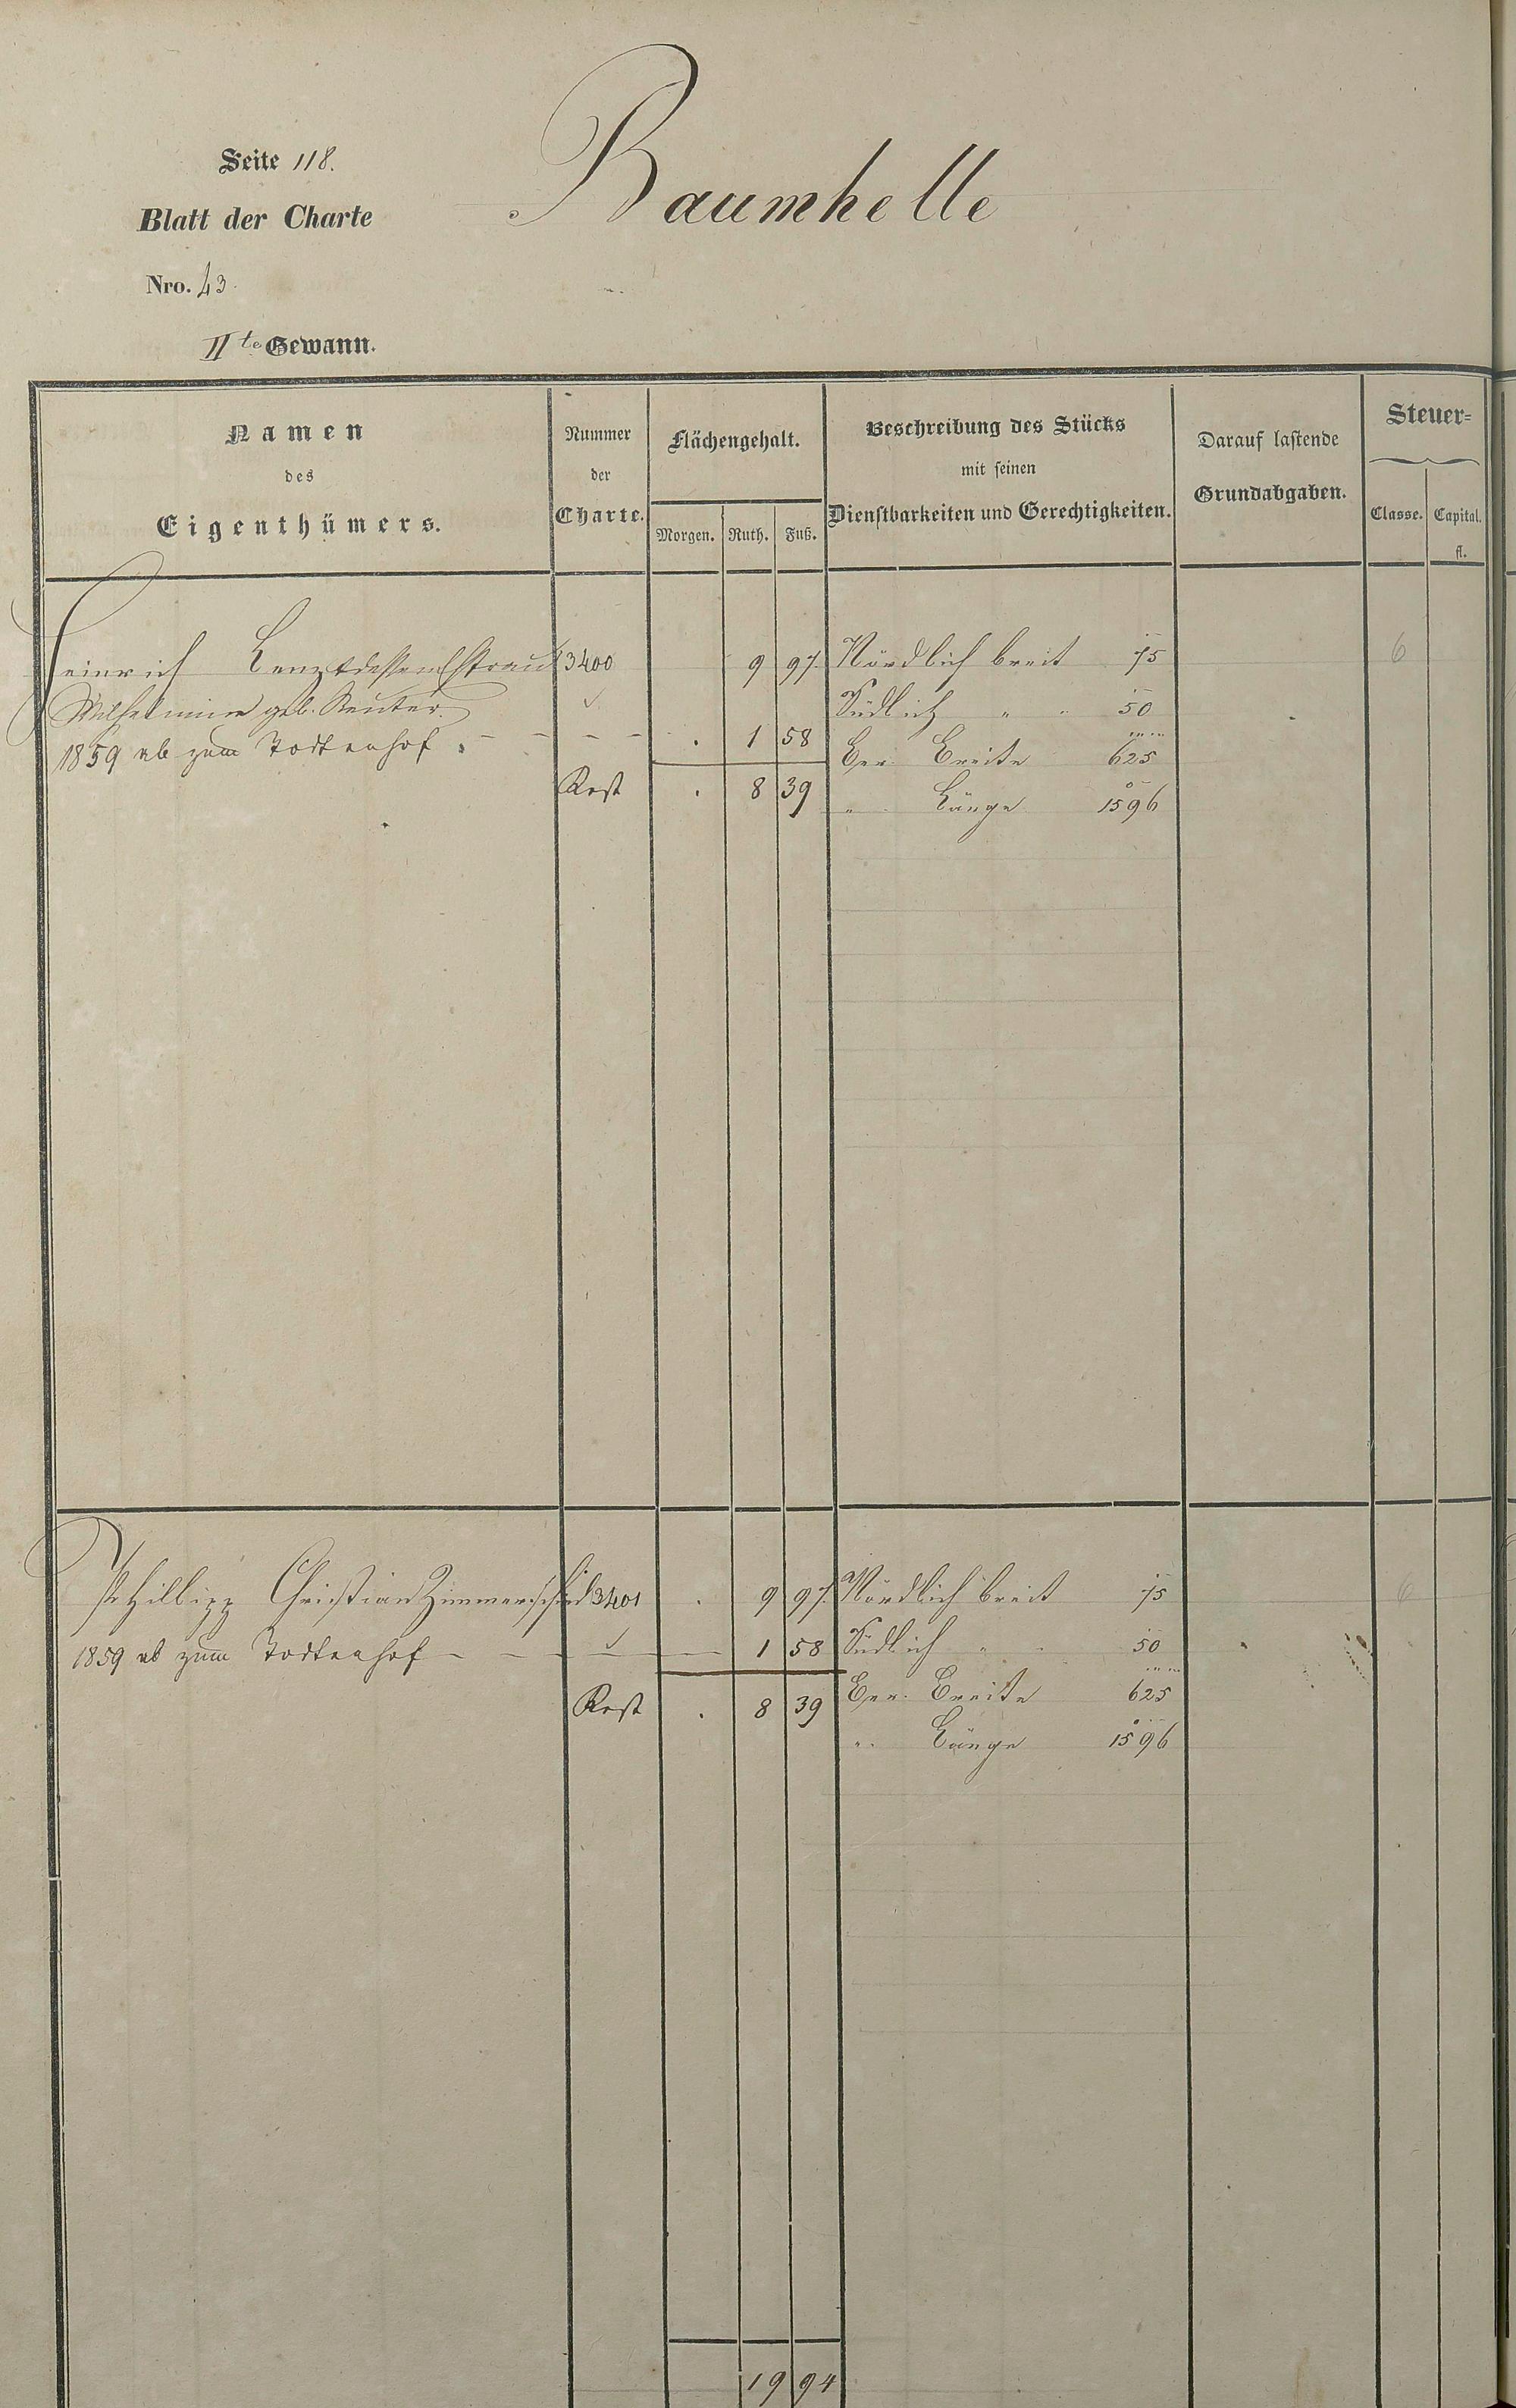 Seite 118.
Baumhelle
Blatt der Charte
Nro. 43
IIte Gewann.
Namen des Eigenthümers.
Nummer der Charte.
Flächengehalt.
Morgen. Ruth. Fuß.
Beschreibung des Stücks
mit seinen
Dienstbarkeiten und Gerechtigkeiten.
Darauf lastende
Grundabgaben.
Steuer=
Classe. Capital.
fl.
Heinrich Lenz & dessen Ehefrau 3400 9 97. Nördlich breit 75 6
Wilhelmine geb. Reuter. Südlich " " 50
1859 ab zum Todtenhof . 1 58 Ger. Breite 625
Rest . 8 39 " Länge 1596
Philipp Christian Zimmerschied 3401 . 9 97. Nördlich breit 75 6
1859 ab zum Todtenhof 1 58 Südlich " " 50
Rest . 8 39 Ger. Breite 625
" Länge 1596
19 94